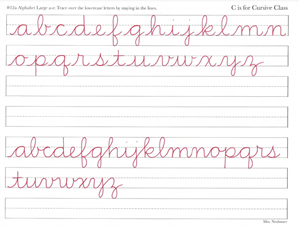 #12a Alphabet Large a-z: Trace over the lowercase letters by staying in the lines.
C is for Cursive Class
a b c d e f g h i j k l m n
o p q r s t u v w x y z
abcdefghijklmnopqrs
tuvwxyz